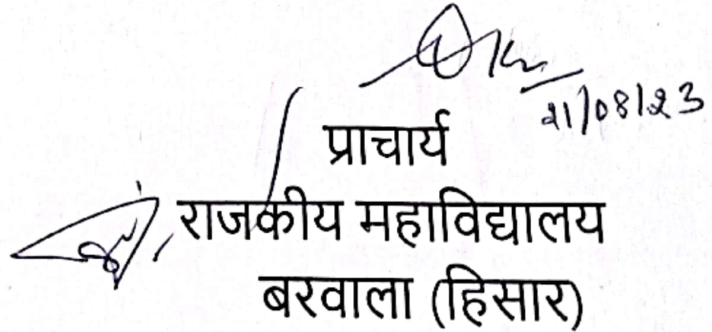 21/08/23
प्राचार्य
राजकीय महाविद्यालय
बरवाला (हिसार)